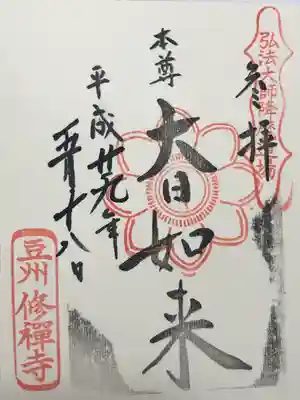 弘法大師
参拝
本尊
大日如来
平成廿九年
五月十八日
豆州 修禪寺